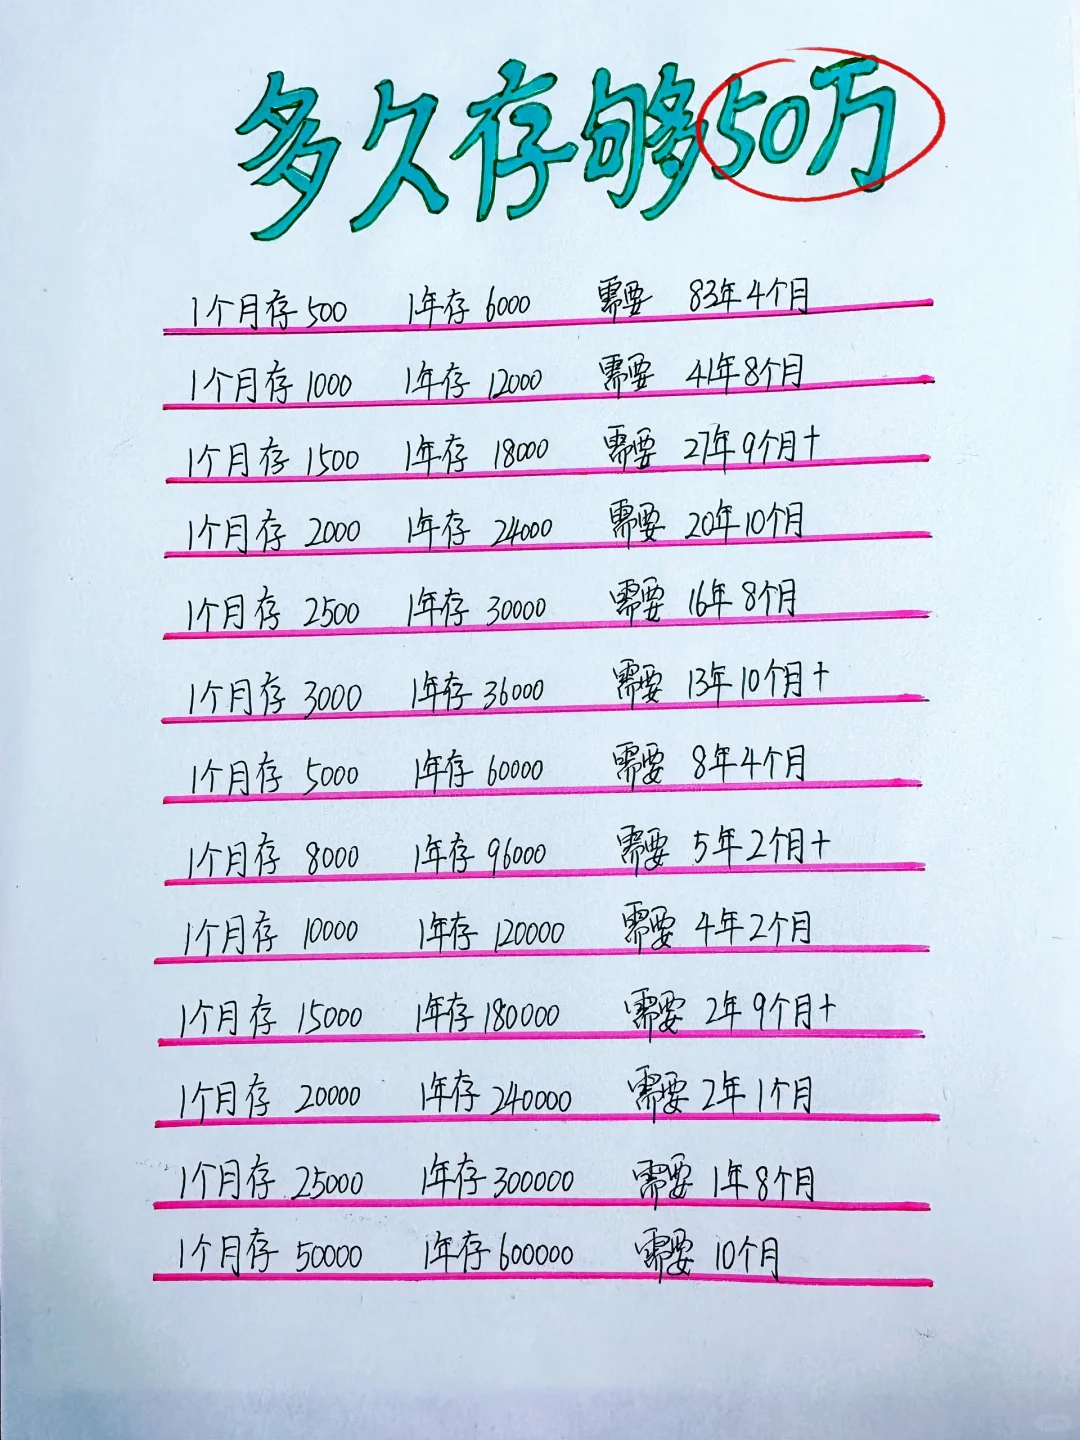 多久存够50万
1个月存 500 1年存 6000 需要 83年4个月
1个月存 1000 1年存 12000 需要 41年8个月
1个月存 1500 1年存 18000 需要 27年9个月+
1个月存 2000 1年存 24000 需要 20年10个月
1个月存 2500 1年存 30000 需要 16年8个月
1个月存 3000 1年存 36000 需要 13年10个月+
1个月存 5000 1年存 60000 需要 8年4个月
1个月存 8000 1年存 96000 需要 5年2个月+
1个月存 10000 1年存 120000 需要 4年2个月
1个月存 15000 1年存 180000 需要 2年9个月+
1个月存 20000 1年存 240000 需要 2年1个月
1个月存 25000 1年存 300000 需要 1年8个月
1个月存 50000 1年存 600000 需要 10个月